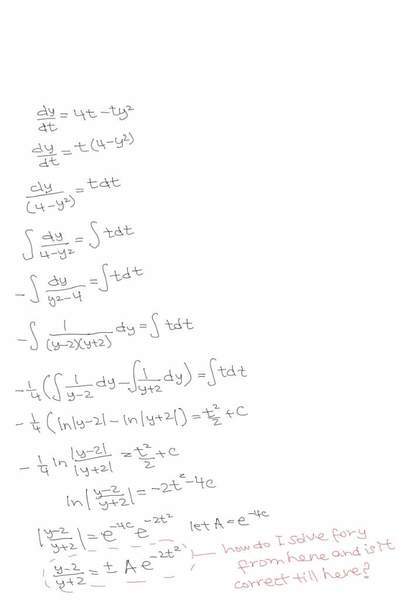 dy/dt = 4t - ty²
dy/dt = t(4-y²)
dy/(4-y²) = tdt
∫ dy/4-y² = ∫ tdt
-∫ dy/y²-4 = ∫ tdt
-∫ 1/(y-2)(y+2) dy = ∫ tdt
-1/4 (∫ 1/y-2 dy - ∫ 1/y+2 dy) = ∫ tdt
-1/4 (ln|y-2| - ln|y+2|) = t²/2 + C
-1/4 ln |y-2|/|y+2| = t²/2 + C
ln |y-2/y+2| = -2t² - 4C
|y-2/y+2| = e^-4C e^-2t² let A = e^-4C
y-2/y+2 = ± A e^-2t²
how do I solve for y
from here and is it
correct till here?